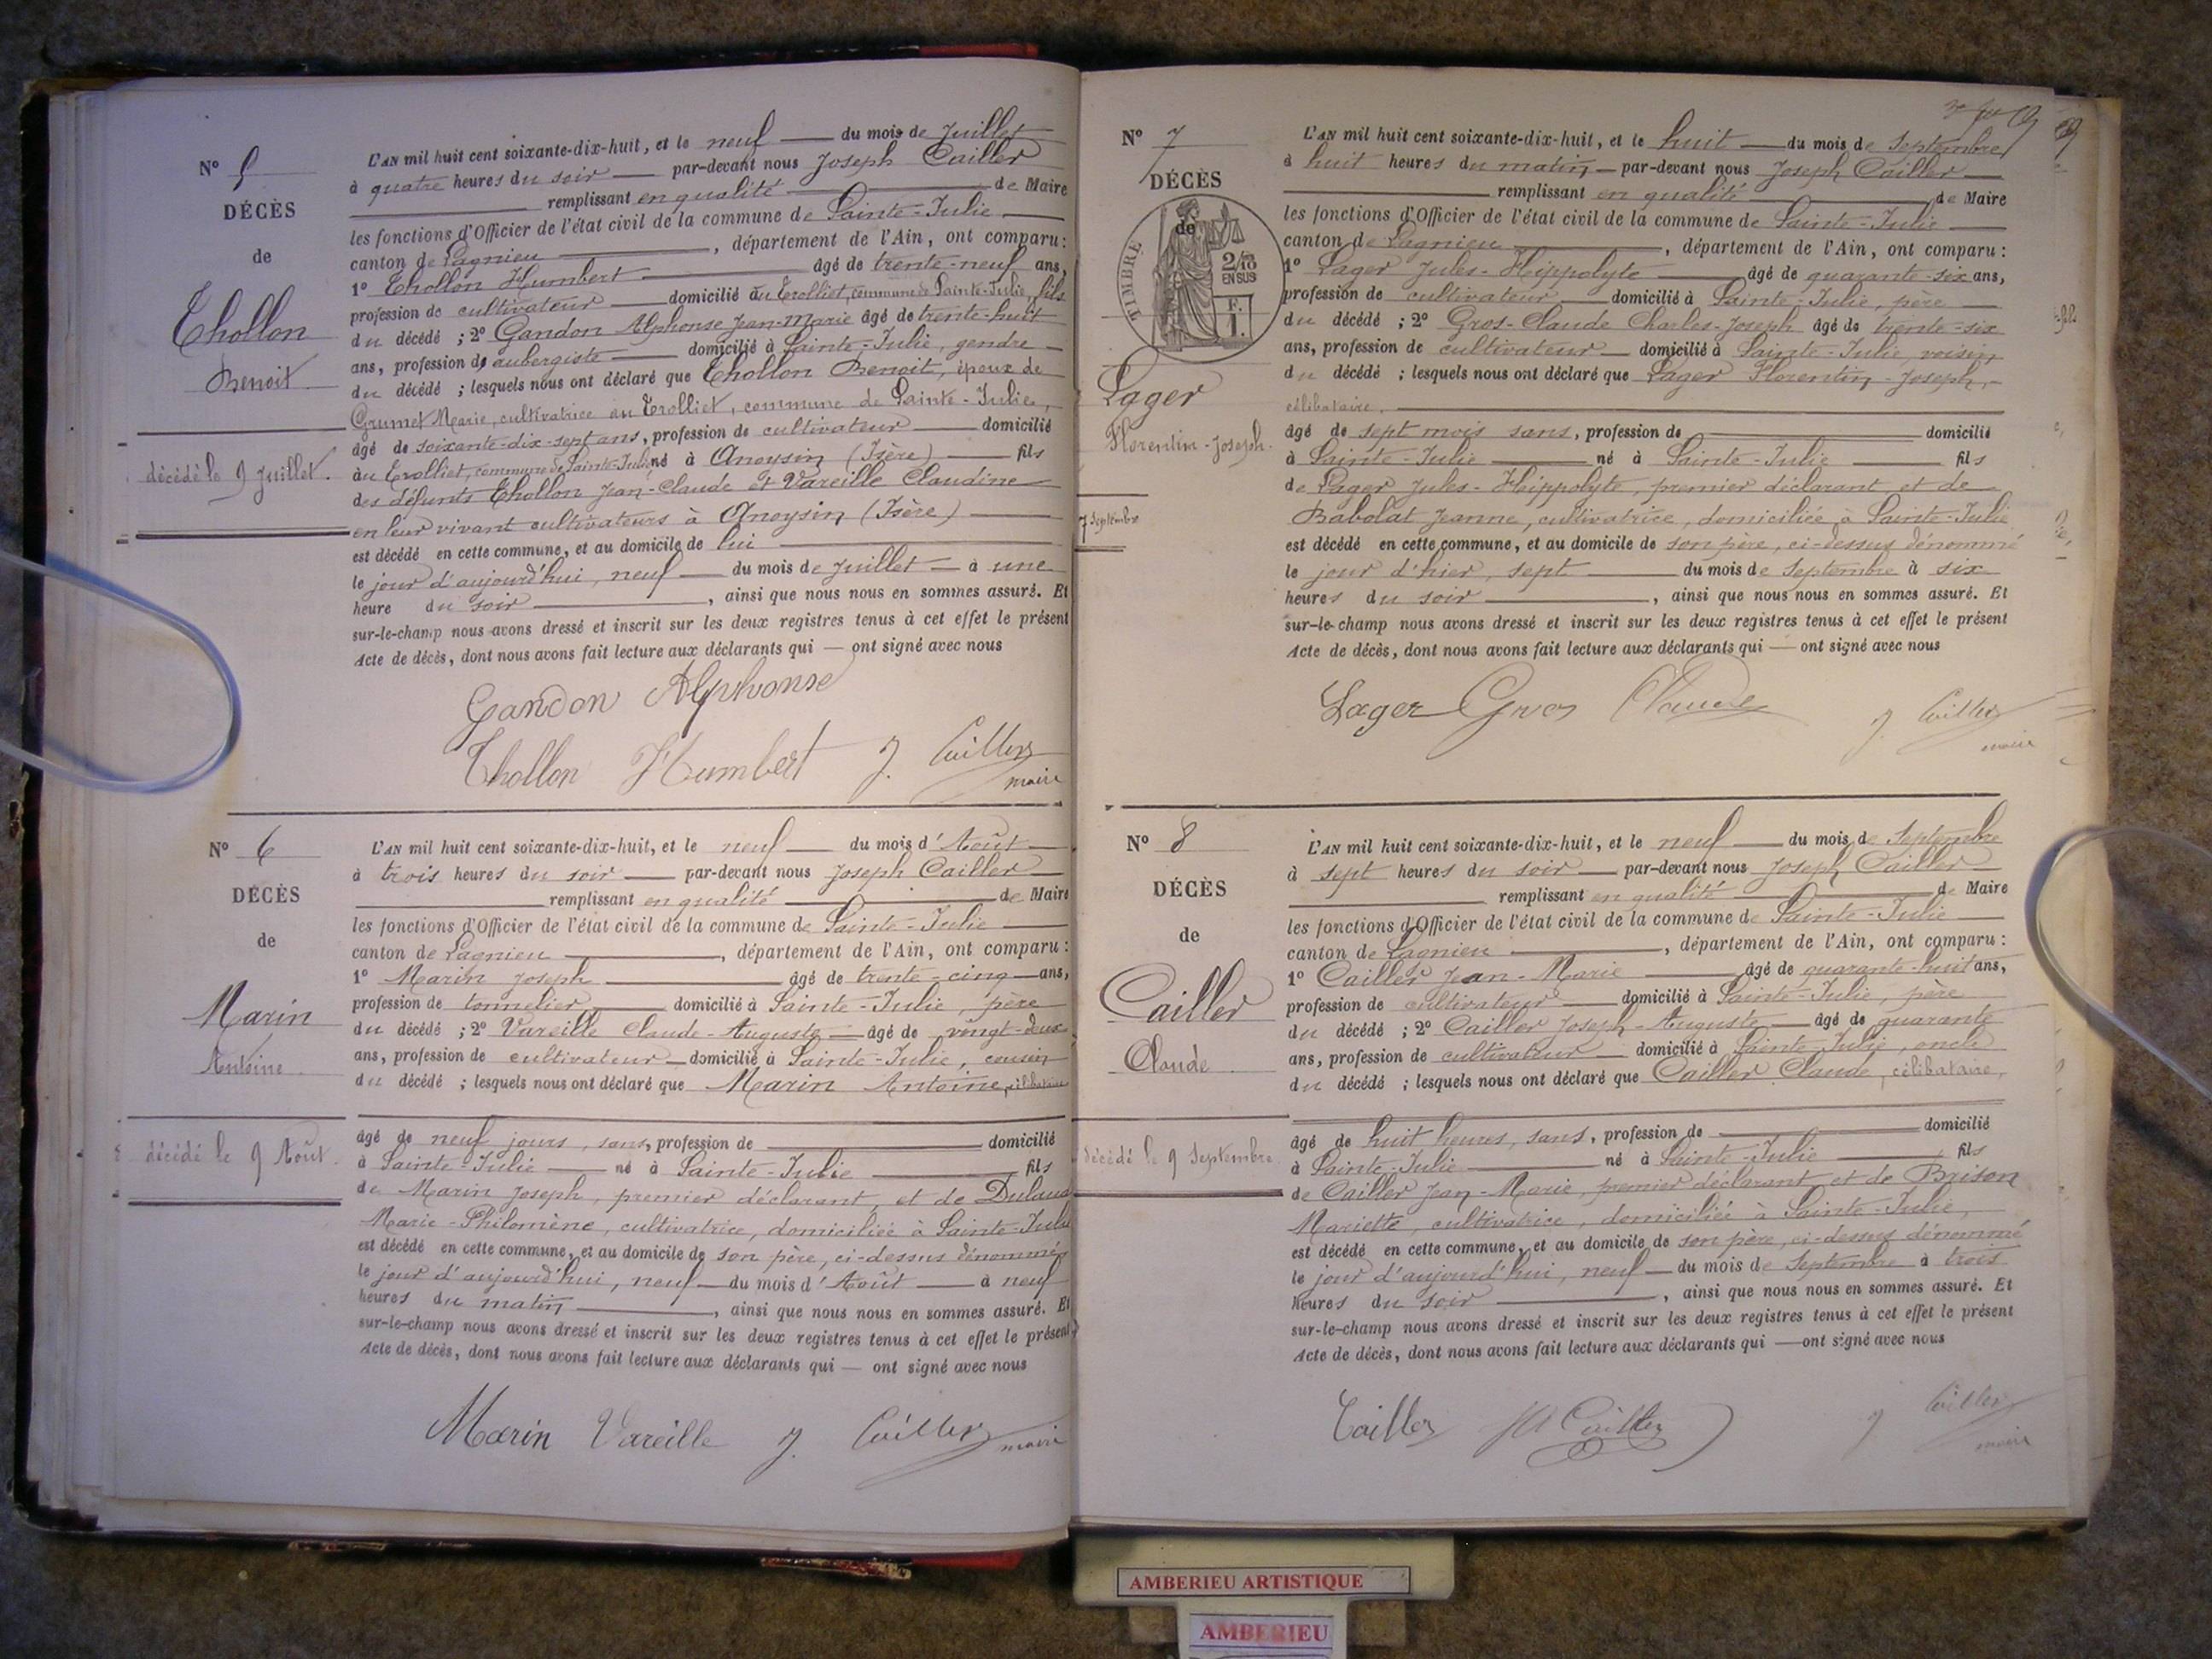 N° 5
DÉCÈS
de
Thollon
Benoit
décédé le 9 Juillet.
L'AN mil huit cent soixante-dix-huit, et le neuf du mois de Juillet
à quatre heures du soir par-devant nous Joseph Cailler
remplissant en qualité de Maire
les fonctions d'Officier de l'état civil de la commune de Sainte-Julie
canton de Lagnieu, département de l'Ain, ont comparu :
1° Thollon Humbert âgé de trente-neuf ans,
profession de cultivateur domicilié au Trolliet, commune de Sainte-Julie, fils
du décédé ; 2° Gandon Alphonse Jean-Marie âgé de trente-huit
ans, profession de aubergiste domicilié à Sainte-Julie, gendre
du décédé ; lesquels nous ont déclaré que Thollon Benoit, époux de
Grumet Marie, cultivatrice au Trolliet, commune de Sainte-Julie,
âgé de soixante-dix-sept ans, profession de cultivateur domicilié
au Trolliet, commune de Sainte-Julie né à Anoysin (Isère) fils
des défunts Thollon Jean-Claude et Vareille Claudine
en leur vivant cultivateurs à Anoysin (Isère)
est décédé en cette commune, et au domicile de lui
le jour d'aujourd'hui, neuf du mois de Juillet à une
heure du soir, ainsi que nous nous en sommes assuré. Et
sur-le-champ nous avons dressé et inscrit sur les deux registres tenus à cet effet le présent
Acte de décès, dont nous avons fait lecture aux déclarants qui — ont signé avec nous
Gandon Alphonse
Thollon Humbert J. Cailler
maire
N° 6
DÉCÈS
de
Marin
Antoine
décédé le 9 Août.
L'AN mil huit cent soixante-dix-huit, et le neuf du mois d'Août
à trois heures du soir par-devant nous Joseph Cailler
remplissant en qualité de Maire
les fonctions d'Officier de l'état civil de la commune de Sainte-Julie
canton de Lagnieu, département de l'Ain, ont comparu :
1° Marin Joseph âgé de trente-cinq ans,
profession de tonnelier domicilié à Sainte-Julie, père
du décédé ; 2° Vareille Claude-Auguste âgé de vingt-deux
ans, profession de cultivateur domicilié à Sainte-Julie, cousin
du décédé ; lesquels nous ont déclaré que Marin Antoine, célibataire
âgé de neuf jours, sans, profession de domicilié
à Sainte-Julie né à Sainte-Julie fils
de Marin Joseph, premier déclarant, et de
Marie-Philomène, cultivatrice, domiciliée à Sainte-Julie
est décédé en cette commune, et au domicile de son père, ci-dessus dénommé
le jour d'aujourd'hui, neuf du mois d'Août à neuf
heures du matin, ainsi que nous nous en sommes assuré. Et
sur-le-champ nous avons dressé et inscrit sur les deux registres tenus à cet effet le présent
Acte de décès, dont nous avons fait lecture aux déclarants qui — ont signé avec nous
Marin Vareille J. Cailler
maire
N° 7
DÉCÈS
de
TIMBRE
2/10
EN SUS
F.
1.
Lager
Florentin-Joseph.
7 Septembre
L'AN mil huit cent soixante-dix-huit, et le huit du mois de Septembre
à huit heures du matin par-devant nous Joseph Cailler
remplissant en qualité de Maire
les fonctions d'Officier de l'état civil de la commune de Sainte-Julie
canton de Lagnieu, département de l'Ain, ont comparu :
1° Lager Jules-Hippolyte âgé de quarante-six ans,
profession de cultivateur domicilié à Sainte-Julie, père
du décédé ; 2° Gros-Claude Charles-Joseph âgé de trente-six
ans, profession de cultivateur domicilié à Sainte-Julie, voisin
du décédé ; lesquels nous ont déclaré que Lager Florentin-Joseph,
célibataire.
âgé de sept mois sans, profession de domicilié
à Sainte-Julie né à Sainte-Julie fils
de Lager Jules-Hippolyte, premier déclarant et de
Babolat Jeanne, cultivatrice, domiciliée à Sainte-Julie
est décédé en cette commune, et au domicile de son père, ci-dessus dénommé
le jour d'hier, sept du mois de Septembre à six
heures du soir, ainsi que nous nous en sommes assuré. Et
sur-le-champ nous avons dressé et inscrit sur les deux registres tenus à cet effet le présent
Acte de décès, dont nous avons fait lecture aux déclarants qui — ont signé avec nous
Lager Gros Claude J. Cailler
maire
N° 8
DÉCÈS
de
Cailler
Claude
décédé le 9 Septembre
L'AN mil huit cent soixante-dix-huit, et le neuf du mois de Septembre
à sept heures du soir par-devant nous Joseph Cailler
remplissant en qualité de Maire
les fonctions d'Officier de l'état civil de la commune de Sainte-Julie
canton de Lagnieu, département de l'Ain, ont comparu :
1° Cailler Jean-Marie âgé de quarante-huit ans,
profession de cultivateur domicilié à Sainte-Julie, père
du décédé ; 2° Cailler Joseph-Auguste âgé de quarante
ans, profession de cultivateur domicilié à Sainte-Julie, oncle
du décédé ; lesquels nous ont déclaré que Cailler Claude, célibataire,
âgé de huit heures, sans, profession de domicilié
à Sainte-Julie né à Sainte-Julie fils
de Cailler Jean-Marie, premier déclarant et de Brison
Mariette, cultivatrice, domiciliée à Sainte-Julie,
est décédé en cette commune, et au domicile de son père, ci-dessus dénommé
le jour d'aujourd'hui, neuf du mois de Septembre à trois
heures du soir, ainsi que nous nous en sommes assuré. Et
sur-le-champ nous avons dressé et inscrit sur les deux registres tenus à cet effet le présent
Acte de décès, dont nous avons fait lecture aux déclarants qui — ont signé avec nous
Cailler JA Cailler J Cailler
maire
AMBERIEU ARTISTIQUE
AMBERIEU